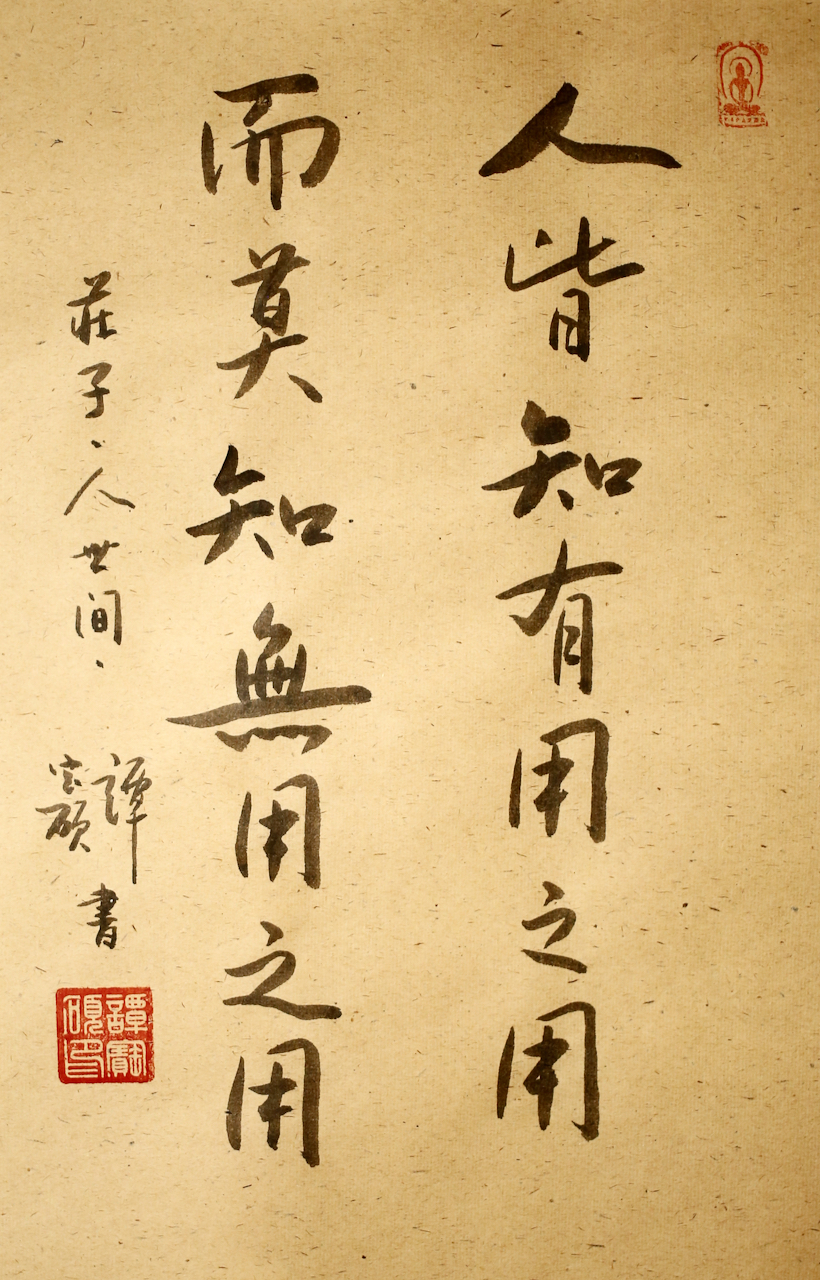 人皆知有用之用
而莫知無用之用
莊子、人世间、
譚宝硕書
譚寶碩印